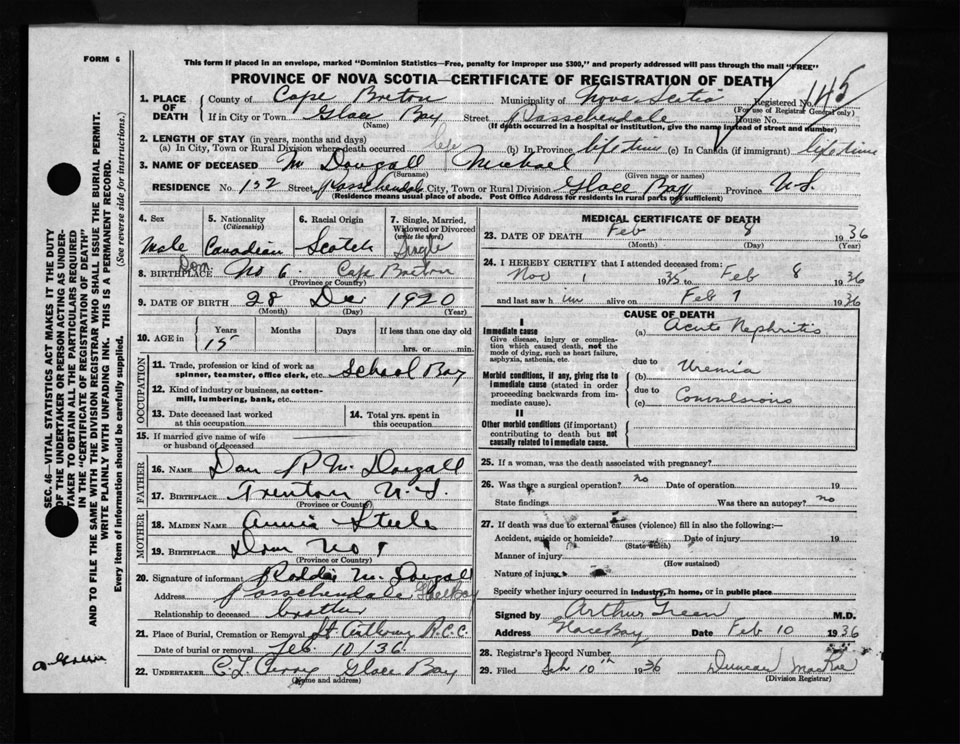 FORM 6
This form if placed in an envelope, marked "Dominion Statistics—Free, penalty for improper use $300," and properly addressed will pass through the mail "FREE"
PROVINCE OF NOVA SCOTIA—CERTIFICATE OF REGISTRATION OF DEATH
SEC. 46—VITAL STATISTICS ACT MAKES IT THE DUTY
OF THE UNDERTAKER OR PERSON ACTING AS UNDER-
TAKER TO OBTAIN ALL THE PARTICULARS REQUIRED
IN THE "CERTIFICATE OF REGISTRATION OF DEATH"
AND TO FILE THE SAME WITH THE DIVISION REGISTRAR WHO SHALL ISSUE THE BURIAL PERMIT.
WRITE PLAINLY WITH UNFADING INK. THIS IS A PERMANENT RECORD.
Every item of information should be carefully supplied. (See reverse side for instructions.)
1. PLACE OF DEATH County of Cape Breton Municipality of Nova Scotia Registered No. 145
(For use of Registrar General only)
If in City or Town Glace Bay Street Passchendale House No.
(Name) (If death occurred in a hospital or institution, give the name instead of street and number)
2. LENGTH OF STAY (in years, months and days)
(a) In City, Town or Rural Division where death occurred life (b) In Province life time (c) In Canada (if immigrant) life time
3. NAME OF DECEASED Mc Dougall Michael
(Surname) (Given name or names)
RESIDENCE No. 132 Street Passchendale City, Town or Rural Division Glace Bay Province N.S.
(Residence means usual place of abode. Post Office Address for residents in rural parts not sufficient)
4. Sex 5. Nationality 6. Racial Origin 7. Single, Married,
(Citizenship) Widowed or Divorced
(write the word)
Male Canadian Scotch Single
8. BIRTHPLACE Dom No 6. Cape Breton
(Province or Country)
9. DATE OF BIRTH 28 Dec 1920
(Month) (Day) (Year)
10. AGE in Years Months Days If less than one day old
15 hrs. or min.
OCCUPATION
11. Trade, profession or kind of work as
spinner, teamster, office clerk, etc. School Boy
12. Kind of industry or business, as cotton-
mill, lumbering, bank, etc.
13. Date deceased last worked
at this occupation
14. Total yrs. spent in
this occupation
15. If married give name of wife
or husband of deceased
FATHER
16. NAME Dan R McDougall
17. BIRTHPLACE Trenton N.S.
(Province or Country)
MOTHER
18. MAIDEN NAME Annie Steele
19. BIRTHPLACE Dom No 1
(Province or Country)
20. Signature of informant Roddie McDougall
Address Passchendale Glace Bay
Relationship to deceased brother
21. Place of Burial, Cremation or Removal St Anthony R.C.C.
Date of burial or removal Feb. 10/36.
22. UNDERTAKER C.L. Curry Glace Bay
(Name and address)
MEDICAL CERTIFICATE OF DEATH
23. DATE OF DEATH Feb 8 1936
(Month) (Day) (Year)
24. I HEREBY CERTIFY that I attended deceased from:
Nov 1 1935 to Feb 8 1936
and last saw him alive on Feb 7 1936
CAUSE OF DEATH
I
Immediate cause (a) Acute Nephritis
Give disease, injury or complica-
tion which caused death, not the
mode of dying, such as heart failure,
asphyxia, asthenia, etc.
due to
Morbid conditions, if any, giving rise to
immediate cause (stated in order
proceeding backwards from im-
mediate cause).
(b) Uremia
due to
(c) Convulsions
II
Other morbid conditions (if important)
contributing to death but not
causally related to immediate cause.
25. If a woman, was the death associated with pregnancy?
26. Was there a surgical operation? no Date of operation 19
State findings Was there an autopsy? no
27. If death was due to external causes (violence) fill in also the following:—
Accident, suicide or homicide? Date of injury 19
(State which)
Manner of injury
(How sustained)
Nature of injury
Specify whether injury occurred in industry, in home, or in public place
Signed by Arthur Green M.D.
Address Glace Bay Date Feb 10 1936
28. Registrar's Record Number
29. Filed Feb 10th 1936 Duncan MacRae
(Division Registrar)